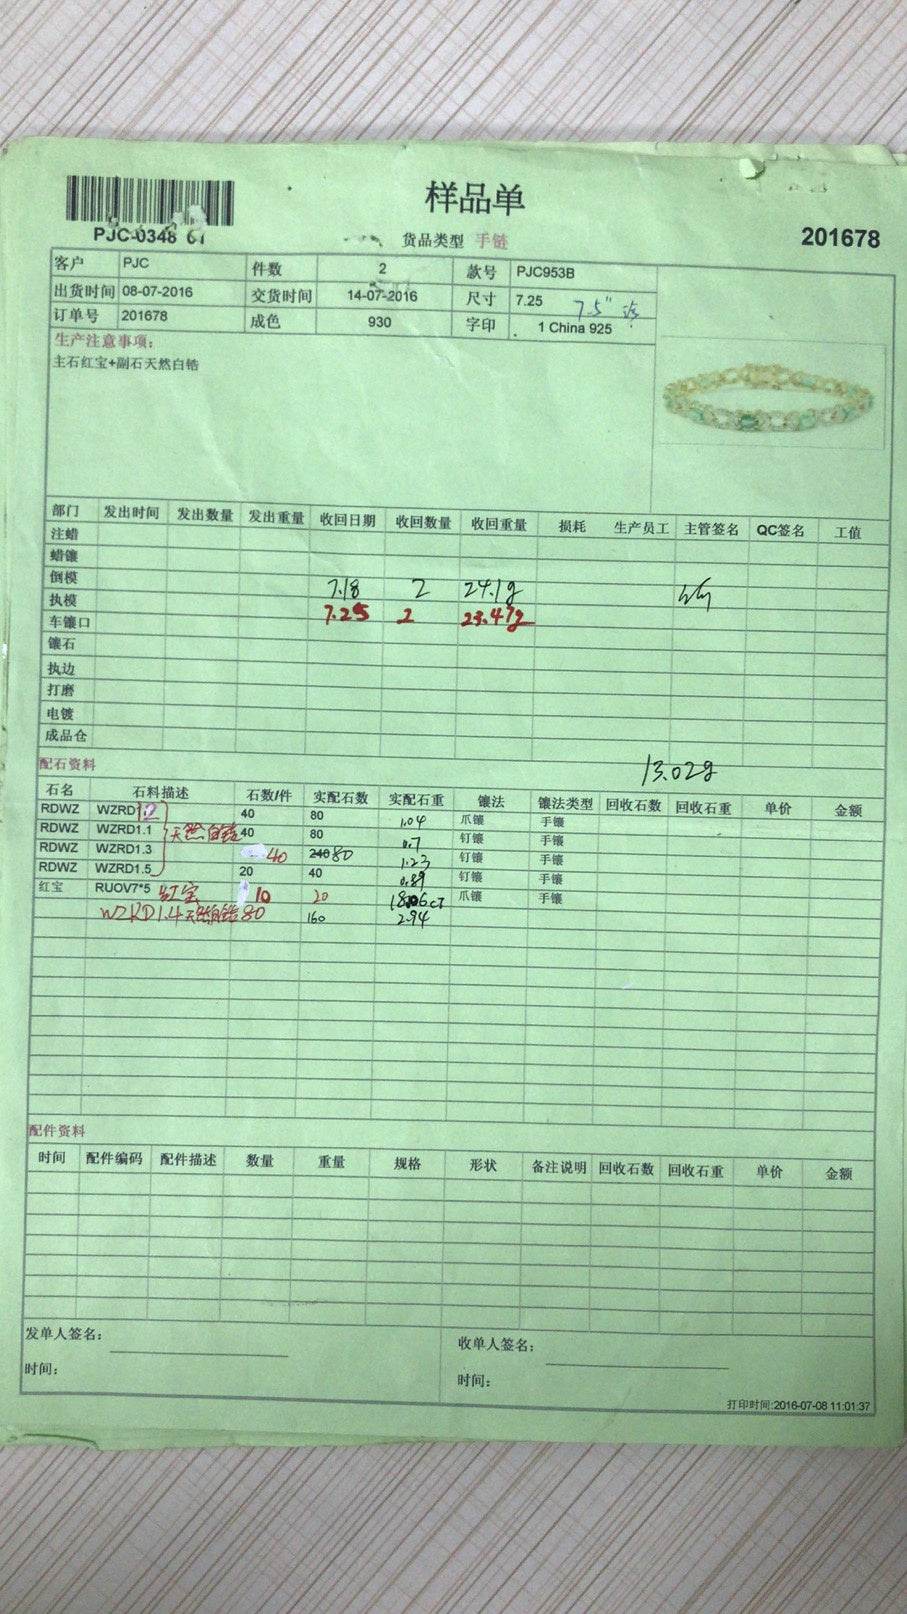 样品单
PJC-0348 61
货品类型 手链
201678
客户 PJC 件数 2 款号 PJC953B
出货时间 08-07-2016 交货时间 14-07-2016 尺寸 7.25 7.5"
订单号 201678 成色 930 字印 1 China 925
生产注意事项:
主石红宝+副石天然白锆
部门 发出时间 发出数量 发出重量 收回日期 收回数量 收回重量 损耗 生产员工 主管签名 QC签名 工值
注蜡
蜡镶
倒模 7.18 2 24.1g
执模 7.25 2 23.47g
车镶口
镶石
执边
打磨
电镀
成品仓
13.02g
配石资料
石名 石料描述 石数/件 实配石数 实配石重 镶法 镶法类型 回收石数 回收石重 单价 金额
RDWZ WZRD1.2 40 80 1.04 爪镶 手镶
RDWZ WZRD1.1 天然白锆 40 80 0.7 钉镶 手镶
RDWZ WZRD1.3 40 240 80 1.23 钉镶 手镶
RDWZ WZRD1.5 20 40 0.89 钉镶 手镶
红宝 RUOV7*5 红宝 10 20 18.06CT 爪镶 手镶
WZRD1.4天然白锆 80 160 2.94
配件资料
时间 配件编码 配件描述 数量 重量 规格 形状 备注说明 回收石数 回收石重 单价 金额
发单人签名: 收单人签名:
时间: 时间:
打印时间:2016-07-08 11:01:37